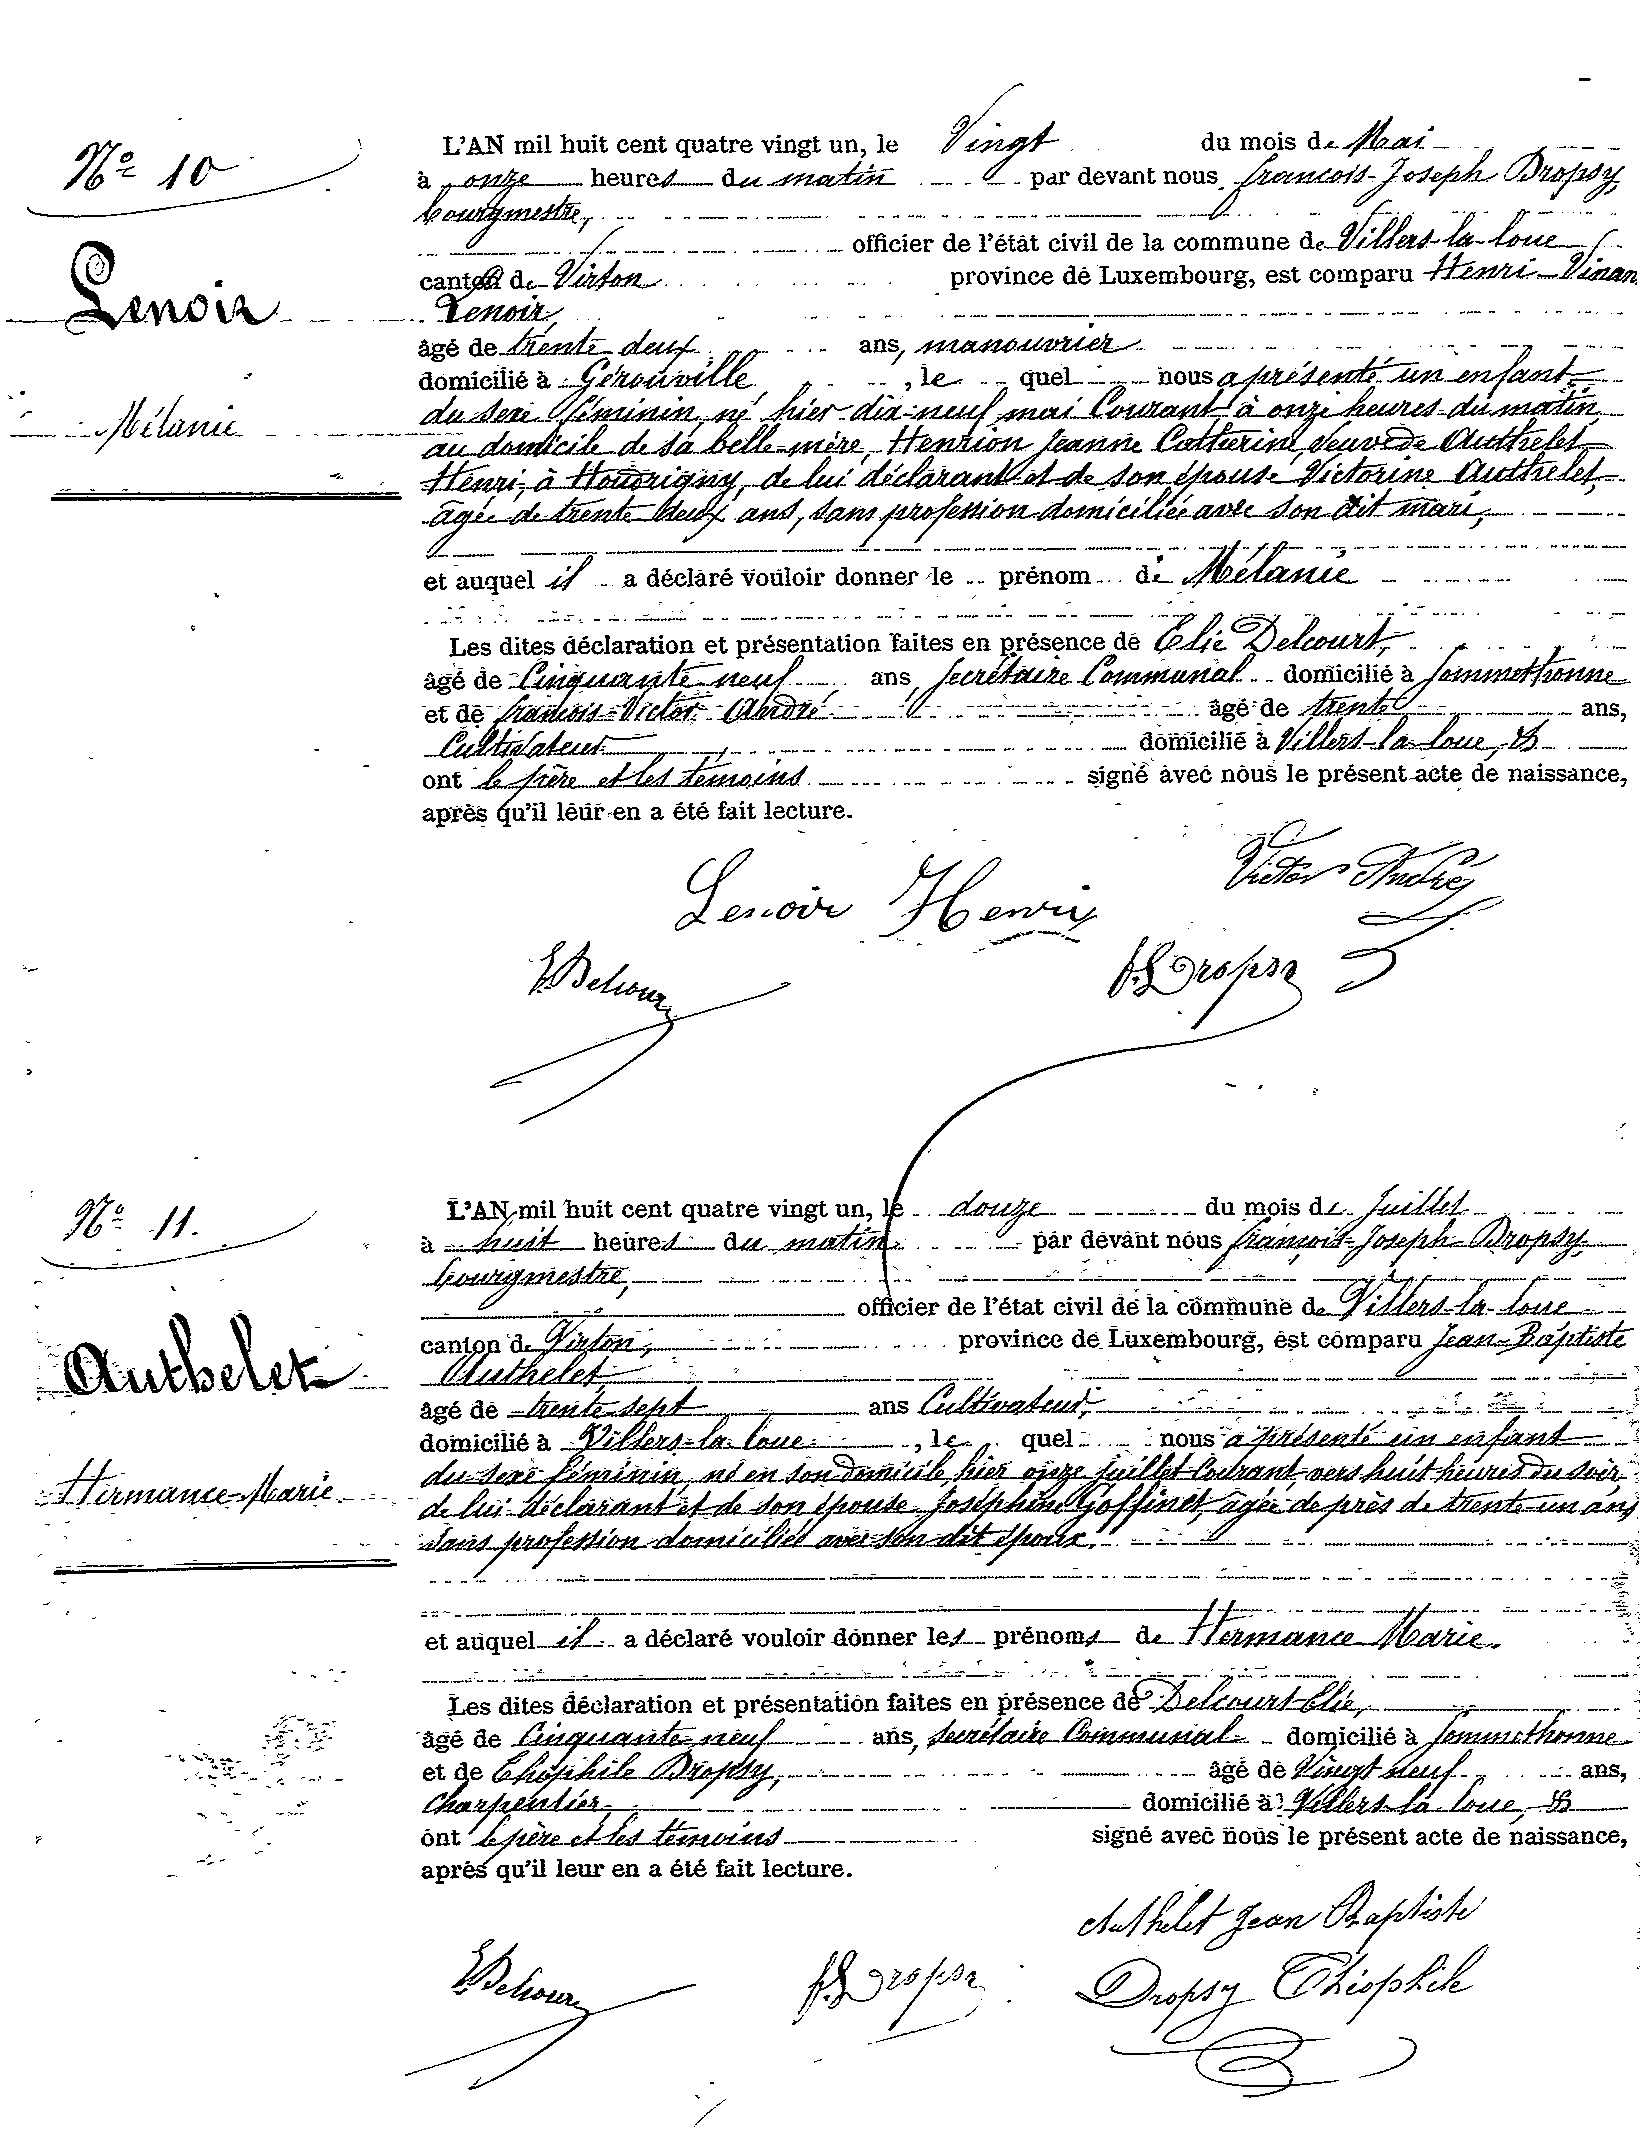 Nº 10
Lenoir
Mélanie
L'AN mil huit cent quatre vingt un, le Vingt du mois de Mai
à onze heures du matin par devant nous François-Joseph Dropsy,
bourgmestre,
officier de l'état civil de la commune de Villers-la-loue
canton de Virton province de Luxembourg, est comparu Henri
Lenoir,
âgé de trente deux ans, manouvrier
domicilié à Gérouville, le quel nous a présenté un enfant
du sexe féminin, né hier dix-neuf mai Courant à onze heures du matin,
au domicile de sa belle-mère, Henrion Jeanne Catherine, Veuve de Authelet
Henri, à Houdrigny, de lui déclarant et de son épouse Victorine Authelet,
âgée de trente deux ans, sans profession domiciliée avec son dit mari,
et auquel il a déclaré vouloir donner le prénom de Mélanie
Les dites déclaration et présentation faites en présence de Elie Delcourt,
âgé de Cinquante neuf ans, Secrétaire Communal domicilié à Sommethonne
et de François-Victor André âgé de trente ans,
Cultivateur domicilié à Villers-la-loue, &
ont le père et les témoins signé avec nous le présent acte de naissance,
après qu'il leur en a été fait lecture.
Lenoir Henri Victor André
E. Delcourt F. J. Dropsy
Nº 11.
Authelet
Hermance-Marie
L'AN mil huit cent quatre vingt un, le douze du mois de Juillet
à huit heures du matin par devant nous François-Joseph-Dropsy,
bourgmestre,
officier de l'état civil de la commune de Villers-la-loue
canton de Virton, province de Luxembourg, est comparu Jean-Baptiste
Authelet,
âgé de trente sept ans Cultivateur,
domicilié à Villers-la-loue, le quel nous a présenté un enfant
du sexe féminin, né en son domicile hier onze juillet Courant, vers huit heures du soir,
de lui déclarant et de son épouse Joséphine Goffinet, âgée de près de trente-un ans
sans profession domiciliée avec son dit époux.
et auquel il a déclaré vouloir donner les prénoms de Hermance Marie.
Les dites déclaration et présentation faites en présence de Delcourt-Elie,
âgé de Cinquante neuf ans, Secrétaire Communal domicilié à Sommethonne
et de Théophile Dropsy, âgé de Vingt neuf ans,
Charpentier, domicilié à Villers-la-loue, &
ont le père et les témoins signé avec nous le présent acte de naissance,
après qu'il leur en a été fait lecture.
Authelet Jean Baptiste
E. Delcourt F. J. Dropsy Dropsy Théophile